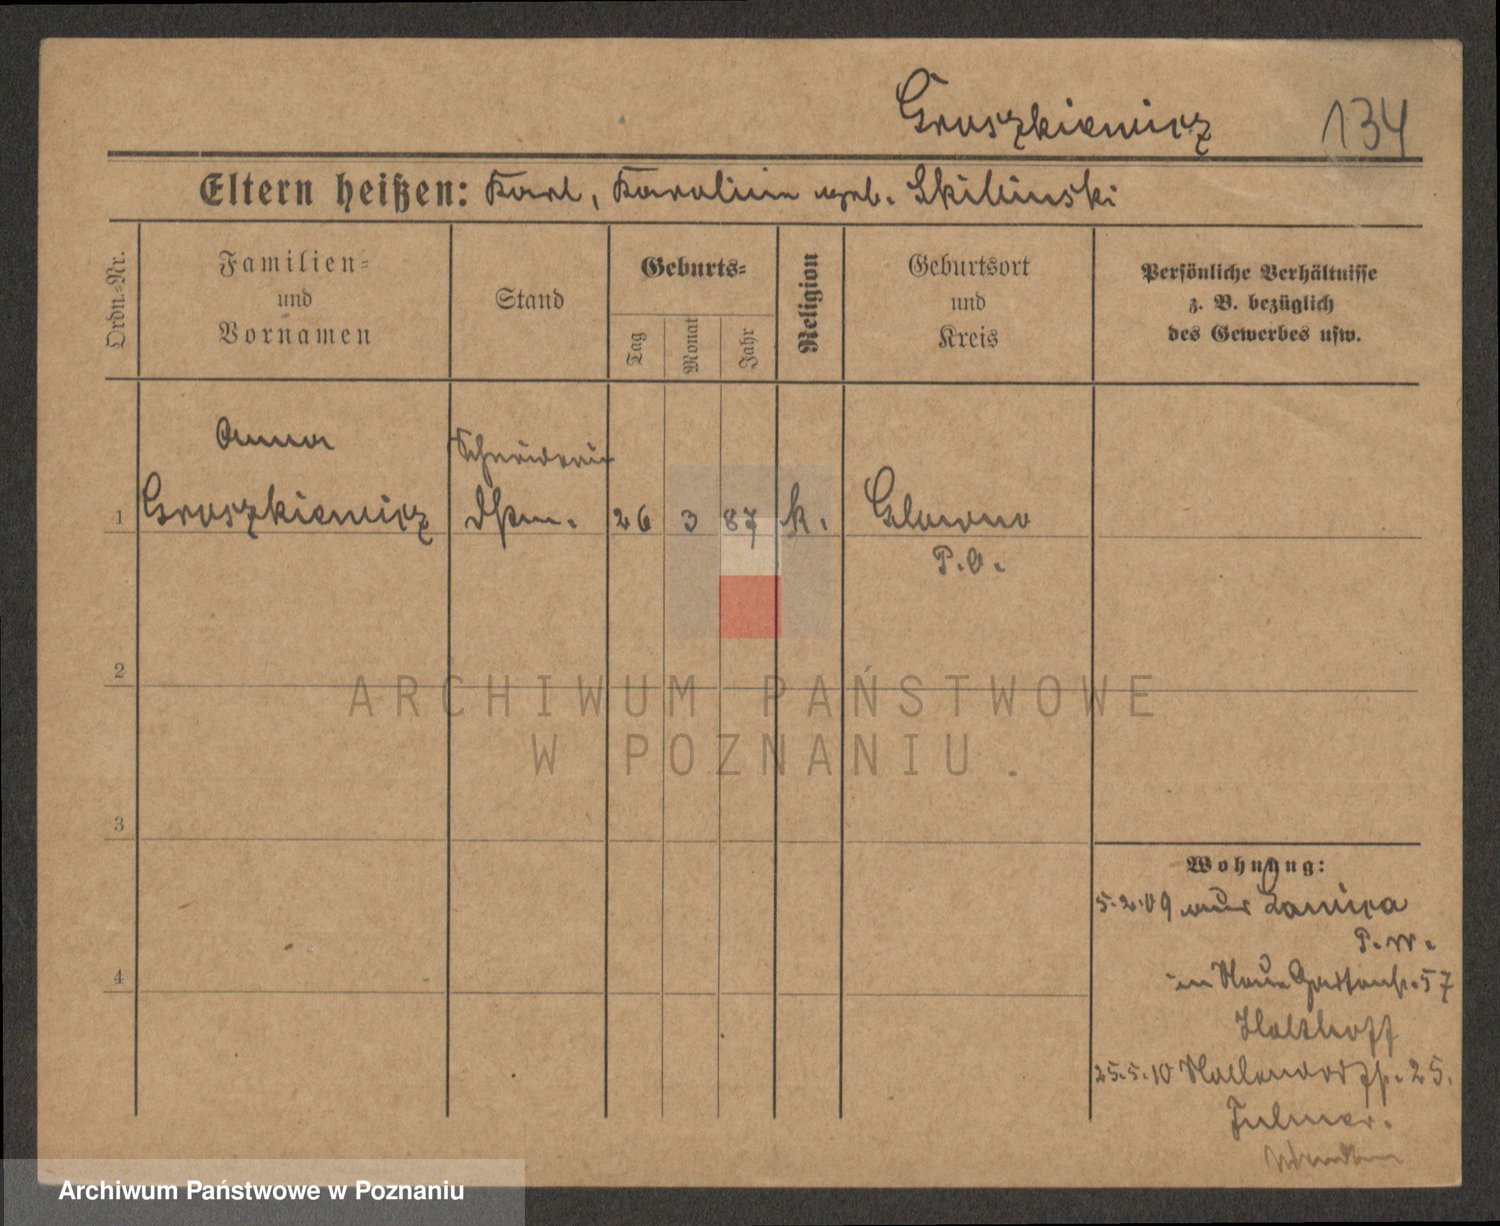 Gruszkiewicz 134
Eltern heißen: Karl, Karoline geb. Skibinski
Ordn.-Nr.
Familien-
und
Vornamen
Stand
Geburts-
Tag
Monat
Jahr
Religion
Geburtsort
und
Kreis
Persönliche Verhältnisse
z. B. bezüglich
des Gewerbes usw.
Anna
Schneiderin
1 Gruszkiewicz 26 3 87 k. Glowno
P.O.
2
3
4
Wohnung:
5.2.09 aus
P.W.
in Neue Gartenstr. 57
25.5.10 25.
ARCHIWUM PAŃSTWOWE
W POZNANIU.
Archiwum Państwowe w Poznaniu